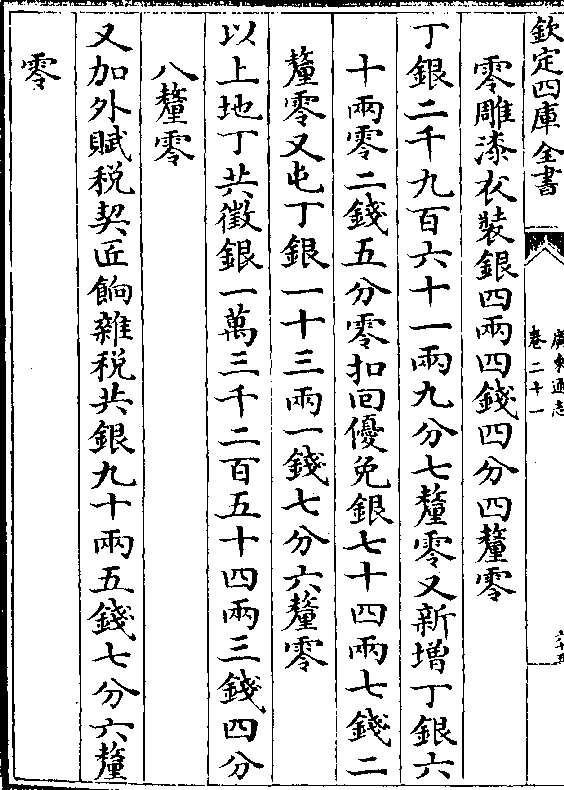 欽定四庫全書
卷二十一
零雕漆衣裝銀四兩四錢四分四釐零
丁銀二千九百六十一兩九分七釐零又新增丁銀六
十兩零二錢五分零扣回優免銀七十四兩七錢二
釐零又屯丁銀一十三兩一錢七分六釐零
以上地丁共徵銀一萬三千二百五十四兩三錢四分
八釐零
又加外賦稅契匠餉雜稅共銀九十兩五錢七分六釐
零